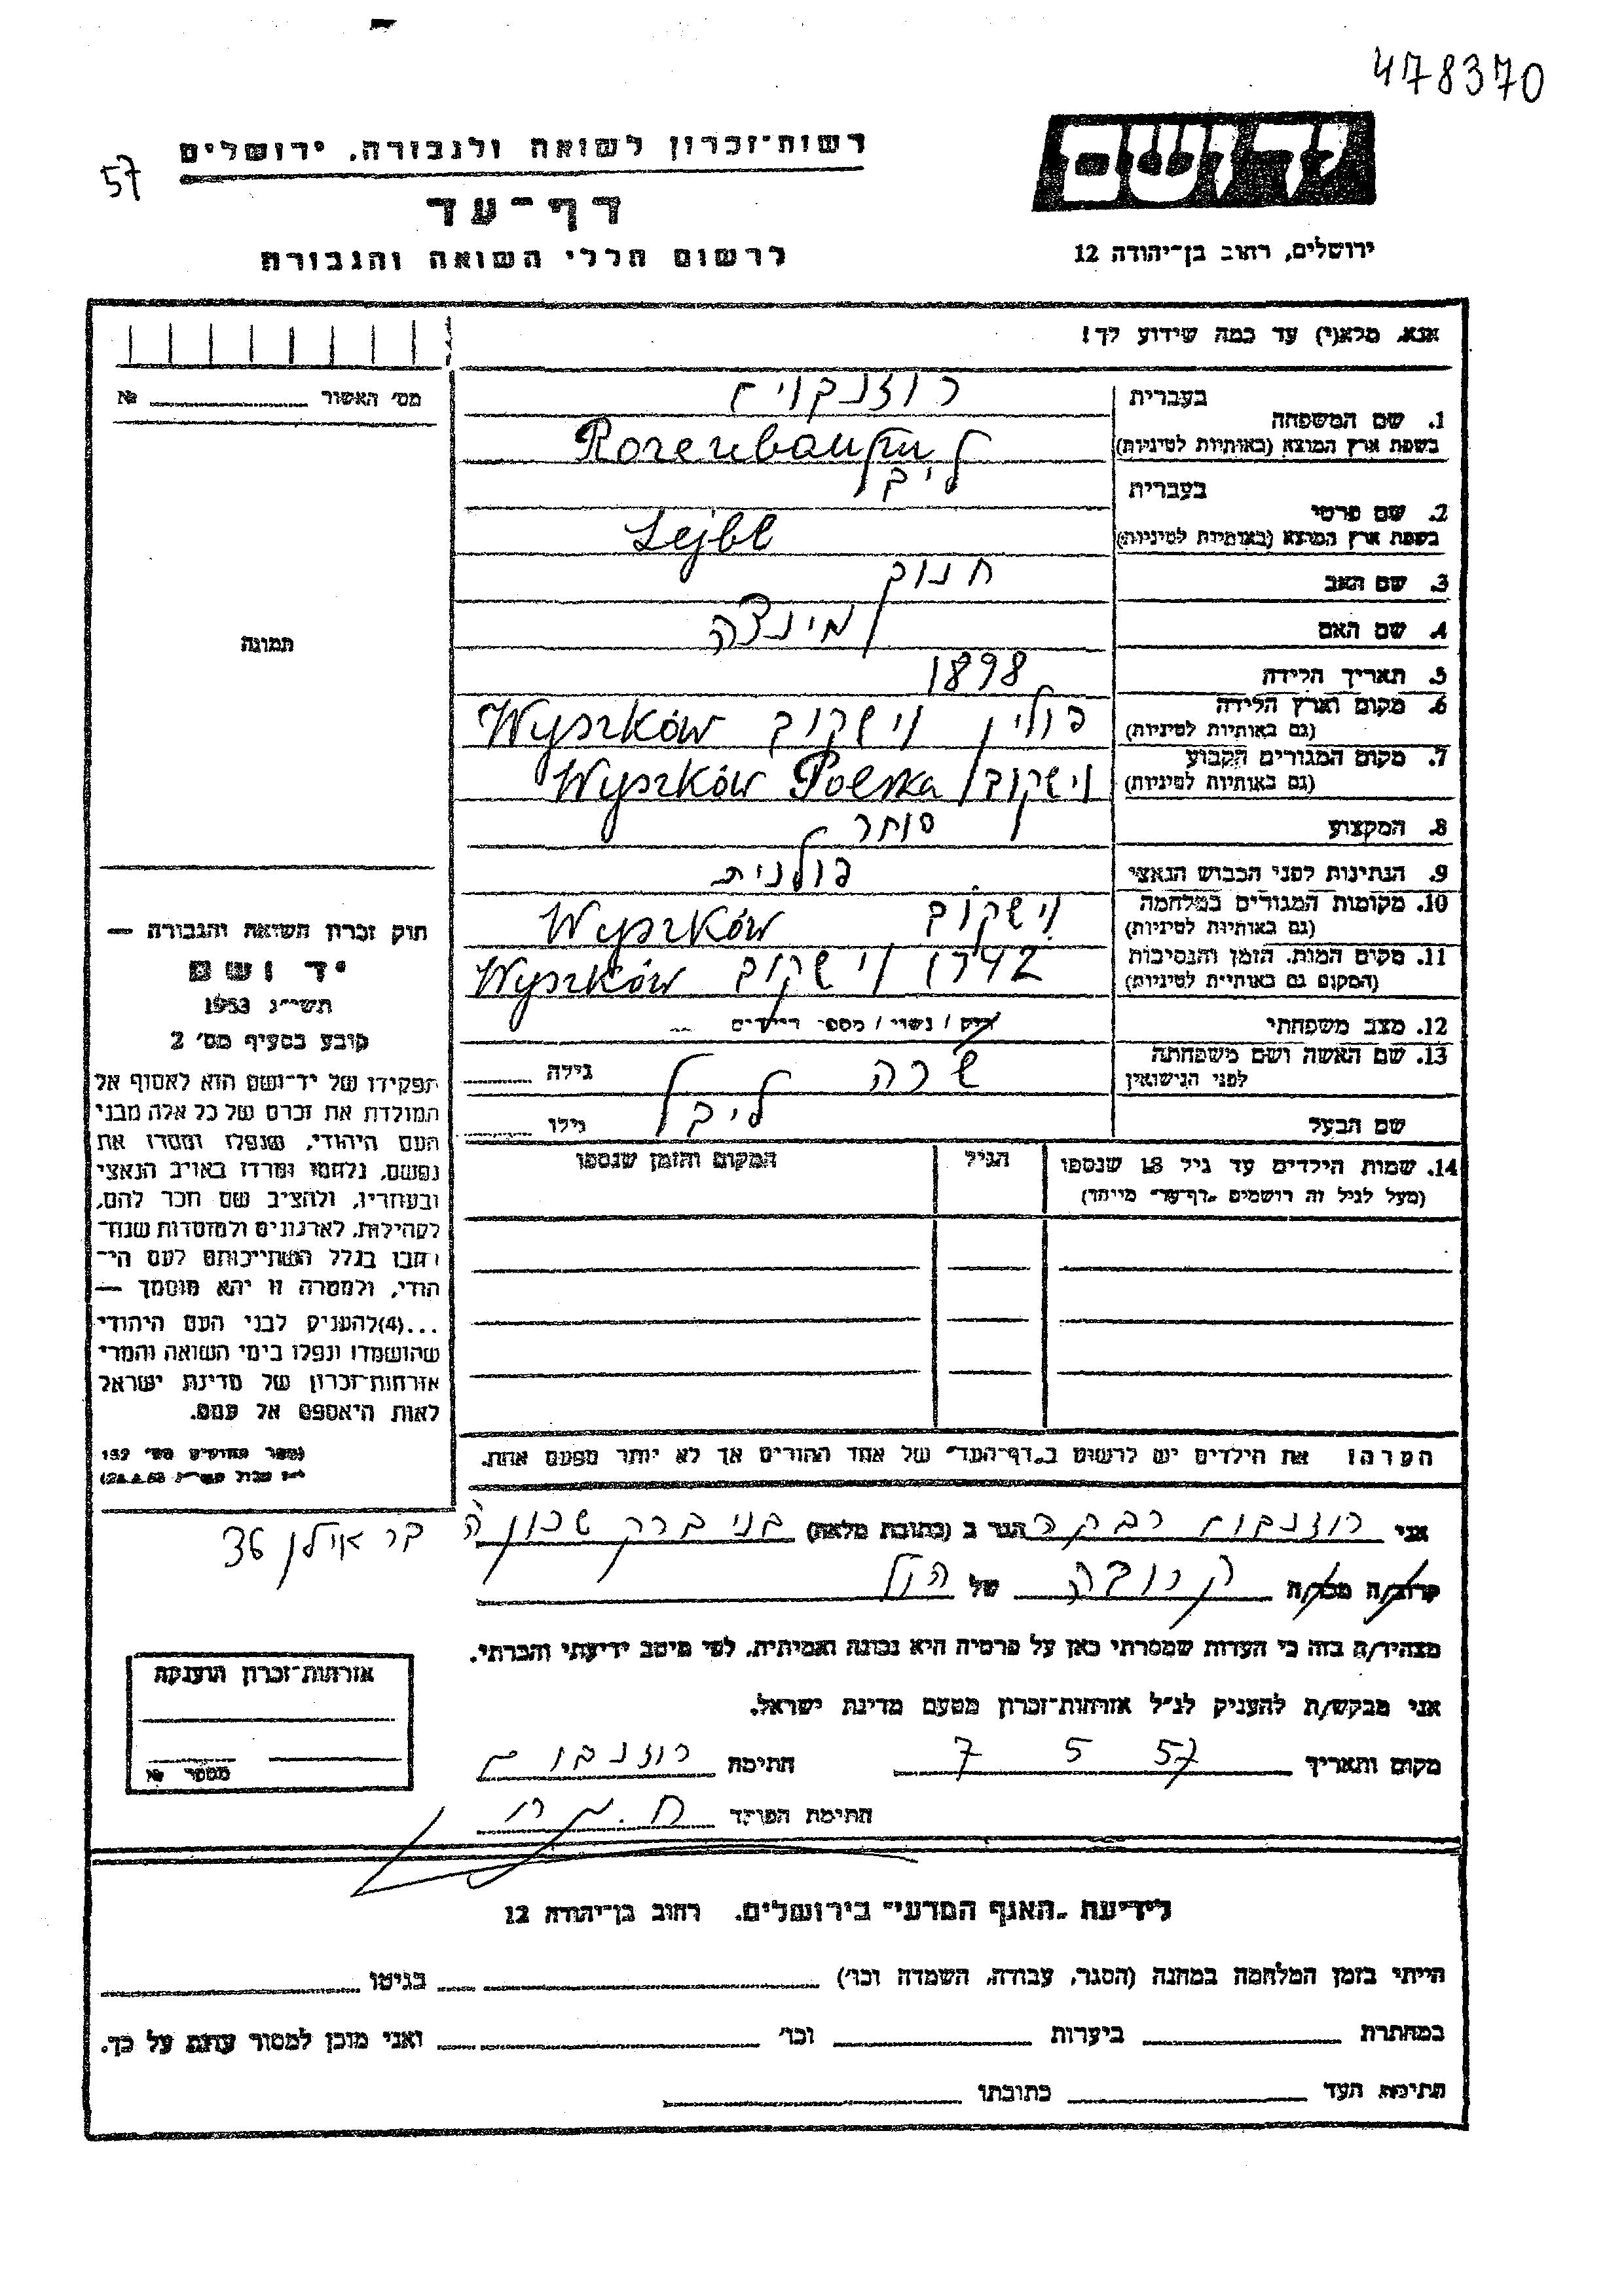 478370
57
רשות־זכרון לשואה ולגבורה, ירושלים
דף־עד
לרשום חללי השואה והגבורה
יד ושם
ירושלים, רחוב בן־יהודה 12
אנא, מלא(י) עד כמה שידוע לך!
מס' האשור № 
תמונה
1. שם המשפחה בעברית רוזנבוים
בשפת ארץ המוצא (באותיות לטיניות) Rozenbaum
2. שם פרטי בעברית ליבל
בשפת ארץ המוצא (באותיות לטיניות) Lejbl
3. שם האב חנוך
4. שם האם מינצה
5. תאריך הלידה 1898
6. מקום וארץ הלידה פולין וישקוב Wyszków
(גם באותיות לטיניות)
7. מקום המגורים הקבוע וישקוב Wyszków Polska
(גם באותיות לטיניות)
8. המקצוע סוחר
9. הנתינות לפני הכבוש הנאצי פולנית
10. מקומות המגורים במלחמה וישקוב Wyszków
(גם באותיות לטיניות)
11. מקום המות, הזמן והנסיבות 1942 וישקוב Wyszków
(המקום גם באותיות לטיניות)
12. מצב משפחתי רווק / נשוי / מספר הילדים
13. שם האשה ושם משפחתה שרה גילה
לפני הנישואין
שם הבעל ליבל גילו
14. שמות הילדים עד גיל 18 שנספו הגיל המקום והזמן שנספו
(מעל לגיל זה רושמים "דף־עד" מיוחד)
חוק זכרון השואה והגבורה —
יד ושם
תשי"ג 1953
קובע בסעיף מס' 2
תפקידו של יד־ושם הוא לאסוף אל
המולדת את זכרם של כל אלה מבני
העם היהודי, שנפלו ומסרו את
נפשם, נלחמו ומרדו באויב הנאצי
ובעוזריו, ולהציב שם וזכר להם,
לקהילות, לארגונים ולמוסדות שנח־
רבו בגלל השתייכותם לעם הי־
הודי, ולמטרה זו יהא מוסמך —
...(4) להעניק לבני העם היהודי
שהושמדו ונפלו בימי השואה והמרי
אזרחות־זכרון של מדינת ישראל
לאות היאספם אל עמם.
(ספר החוקים מס' 132
הערה! את הילדים יש לרשום ב"דף־העד" של אחד ההורים אך לא יותר מפעם אחת.
אני רוזנבוים רבקה הגר ב (כתובת מלאה) בני ברק שכון ה בר אילן 36
קרוב/ה מכר/ה קרובה של הנ"ל
מצהיר/ה בזה כי העדות שמסרתי כאן על פרטיה היא נכונה ואמיתית, לפי מיטב ידיעתי והכרתי.
אני מבקש/ת להעניק לנ"ל אזרחות־זכרון מטעם מדינת ישראל.
מקום ותאריך 57 5 7 חתימה רוזנבוים
חתימת הפוקד
אזרחות־זכרון הוענקה
מספר №
לידיעת "האגף המדעי" בירושלים, רחוב בן־יהודה 12
הייתי בזמן המלחמה במחנה (הסגר, עבודה, השמדה וכו') בגיטו
במחתרת ביערות וכו' ואני מוכן למסור עדות על כך.
חתימת העד כתובתו